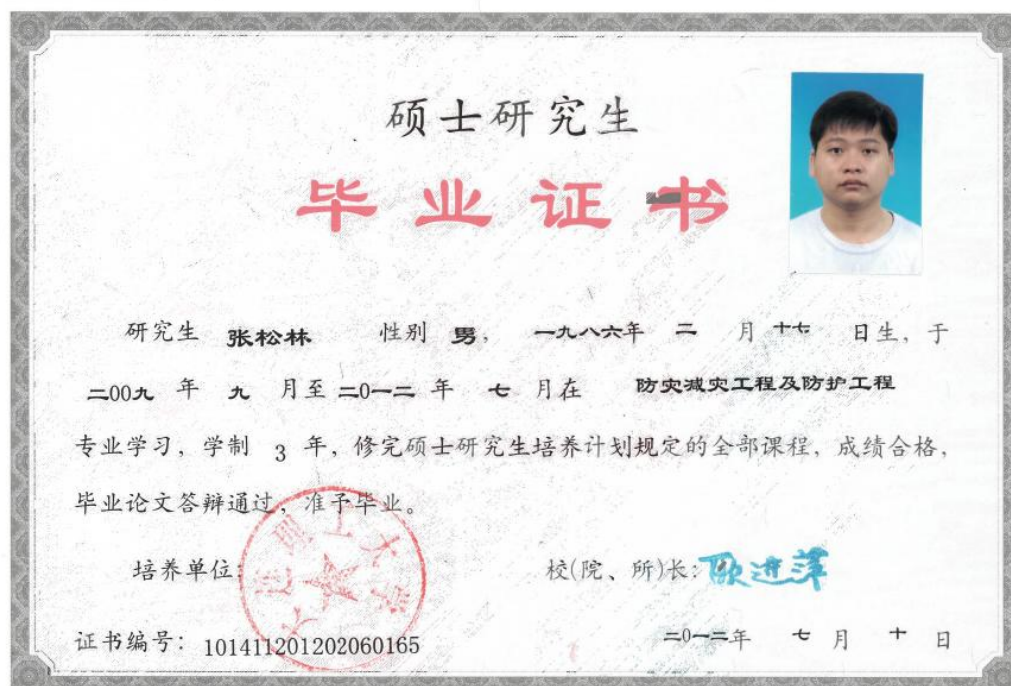 硕士研究生
毕业证书
研究生 张松林 性别 男， 一九八六年 二 月 十七 日生，于
二00九 年 九 月至 二0一二 年 七 月在 防灾减灾工程及防护工程
专业学习，学制 3 年，修完硕士研究生培养计划规定的全部课程，成绩合格，
毕业论文答辩通过，准予毕业。
大连理工大学
培养单位： 校(院、所)长：欧进萍
证书编号：101411201202060165 二0一二年 七 月 十 日